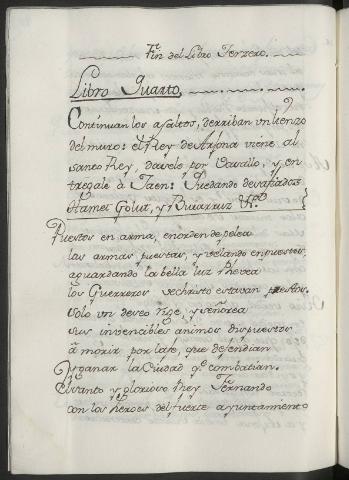 Fin del Libro Terzero.
Libro Quarto.
Continuan los asaltos, derriban un lienzo
del muro: el Rey de Arjona viene al
santo Rey, dasele por Vasallo, y en
tregale à Jaen: Quedando desafiados
Hamet Golut, y
Puestos en arma, en orden de pelea
las armas puestas, y velando en puestos,
aguardando la bella luz Phevea
los Guerreros de christo estavan prestos.
solo un deseo rige, y señorea
sus invencibles animos dispuestos
à morir por la fe, que defendian
y ganar la Ciudad qe. combatian.
El santo y glorioso Rey Fernando
con los heroes del fuerte ayuntamiento